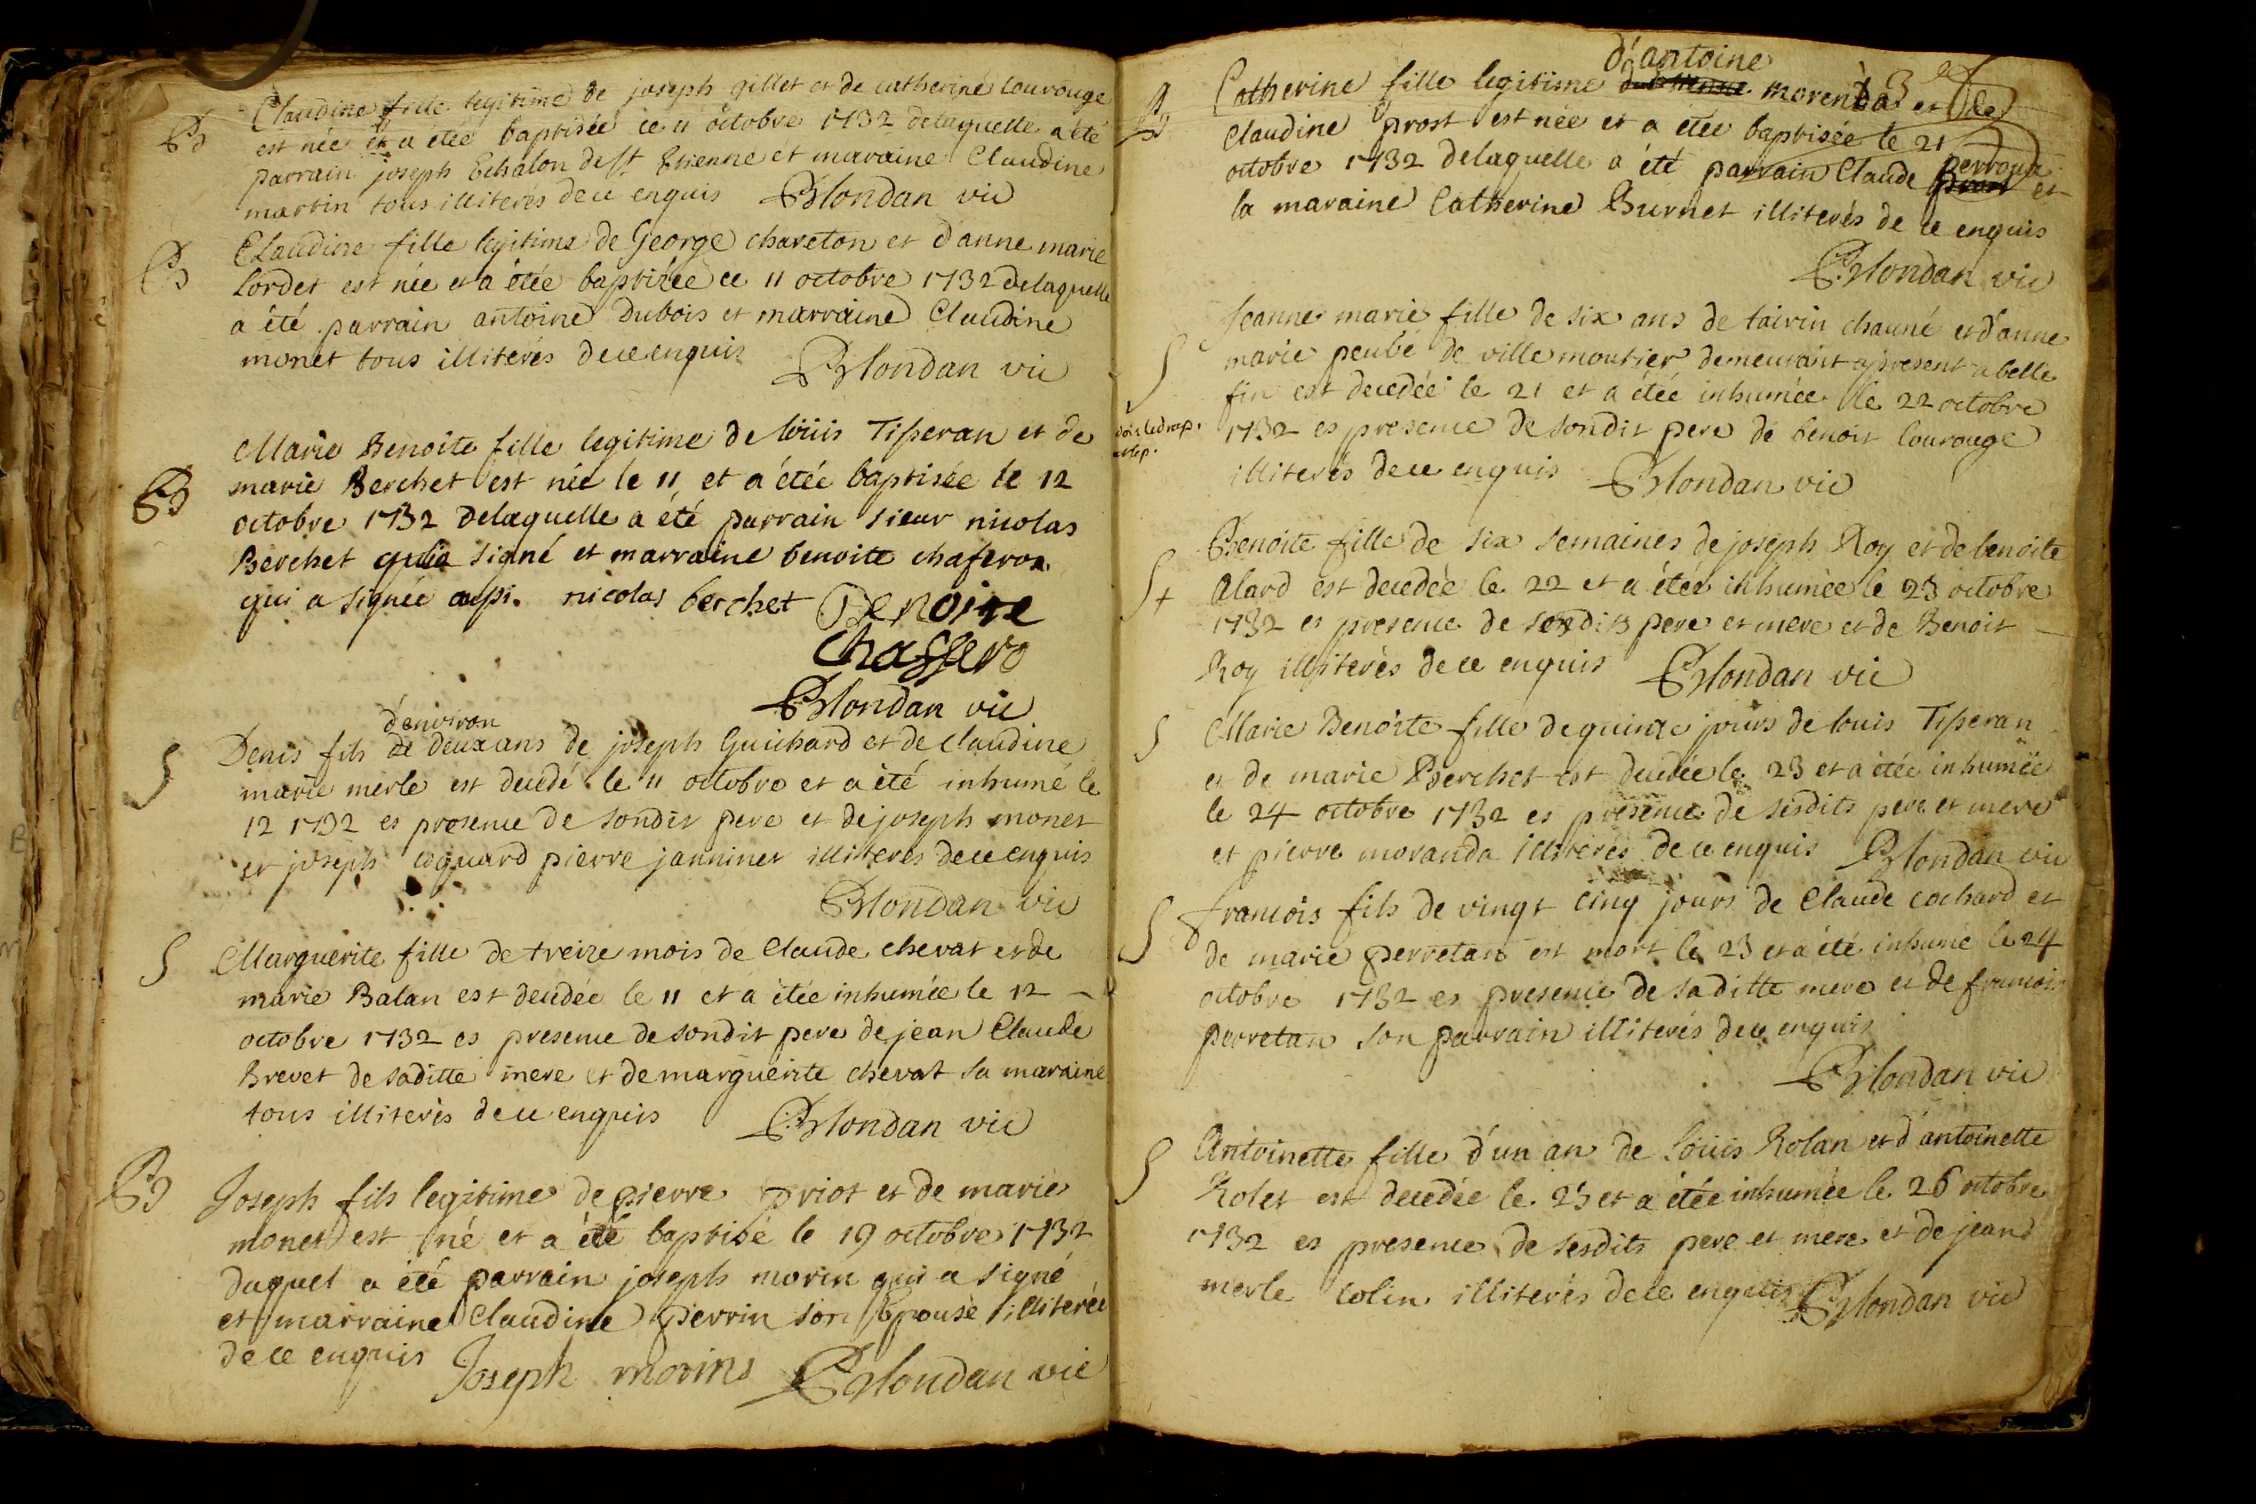 B Claudine fille legitime de joseph gillet et de catherine lourouge
est née et a étée baptisée ce 11 octobre 1732 delaquelle a été
parrain joseph Echalon de st Etienne et maraine Claudine
martin tous illiterés de ce enquis Blondan vic
B Claudine fille legitime de George chareton et d'anne marie
Cordet est née et a étée baptizée ce 11 octobre 1732 delaquelle
a été parrain antoine Dubois et marraine Claudine
monet tous illiterés de ce enquis Blondan vic
B Marie Benoite fille legitime de loüis Tisseran et de
marie Berchet est née le 11 et a étée baptisée le 12
octobre 1732 delaquelle a été parrain sieur nicolas
Berchet qui a signé et marraine benoite chaferoz
qui a signée aussi. nicolas berchet Benoite
Chassero
Blondan vic
d'environ
S Denis fils de deux ans de joseph Guichard et de claudine
marie merle est decedé le 11 octobre et a été inhumé le
12 1732 es presence de sondit pere et de joseph monet
et joseph coquard pierre janninet illiterés de ce enquis
Blondan vic
S Marguerite fille de treize mois de Claude chevat et de
marie Balan est decedée le 11 et a étée inhumée le 12 -
octobre 1732 es presence de sondit pere de jean Claude
Brevet de saditte mere et de marguerite chevat sa maraine
tous illiterés de ce enquis Blondan vic
B Joseph fils legitime de pierre priot et de marie
monet est né et a été baptisé le 19 octobre 1732
duquel a été parrain joseph morin qui a signé
et marraine Claudine perrin son épouse illiterée
de ce enquis Joseph morins Blondan vic
d'antoine 3e
B Catherine fille legitime morenda et de
Claudine prost est née et a étée baptisée le 21
octobre 1732 delaquelle a été parrain Claude perroud
prost et
la maraine Catherine Burnet illiterés de ce enquis
Blondan vic
S Jeanne marie fille de six ans de tairin chauné et d'anne
marie peubé de ville moutier demeurant apresent a belle
fin est decedée le 21 et a étée inhumée le 22 octobre
dois le drap. 1732 es presence de sondit pere de benoit lourouge
illiterés de ce enquis Blondan vic
S+ Benoite fille de six semaines de joseph Roy et de benoite
Alard est decedée le 22 et a étée inhumée le 23 octobre
1732 es presence de sesdits pere et mere et de Benoit -
Roy illiterés de ce enquis Blondan vic
S Marie Benoite fille de quinze jours de louis Tisseran
et de marie Berchet est decedée le 23 et a étée inhumée
le 24 octobre 1732 es presence de sesdits pere et mere
et pierre moranda illiterés de ce enquis Blondan vic
S francois fils de vingt cinq jours de Claude cochard et
de marie perretan est mort le 23 et a été inhumé le 24
octobre 1732 es presence de saditte mere et de francois
perretan son parrain illiterés de ce enquis
Blondan vic
S Antoinette fille d'un an de Loüis Rolan et d'antoinette
Rolet est decedée le 25 et a étée inhumée le 26 octobre
1732 es presence de sesdits pere et mere et de jean
merle colin illiterés de ce enquis Blondan vic